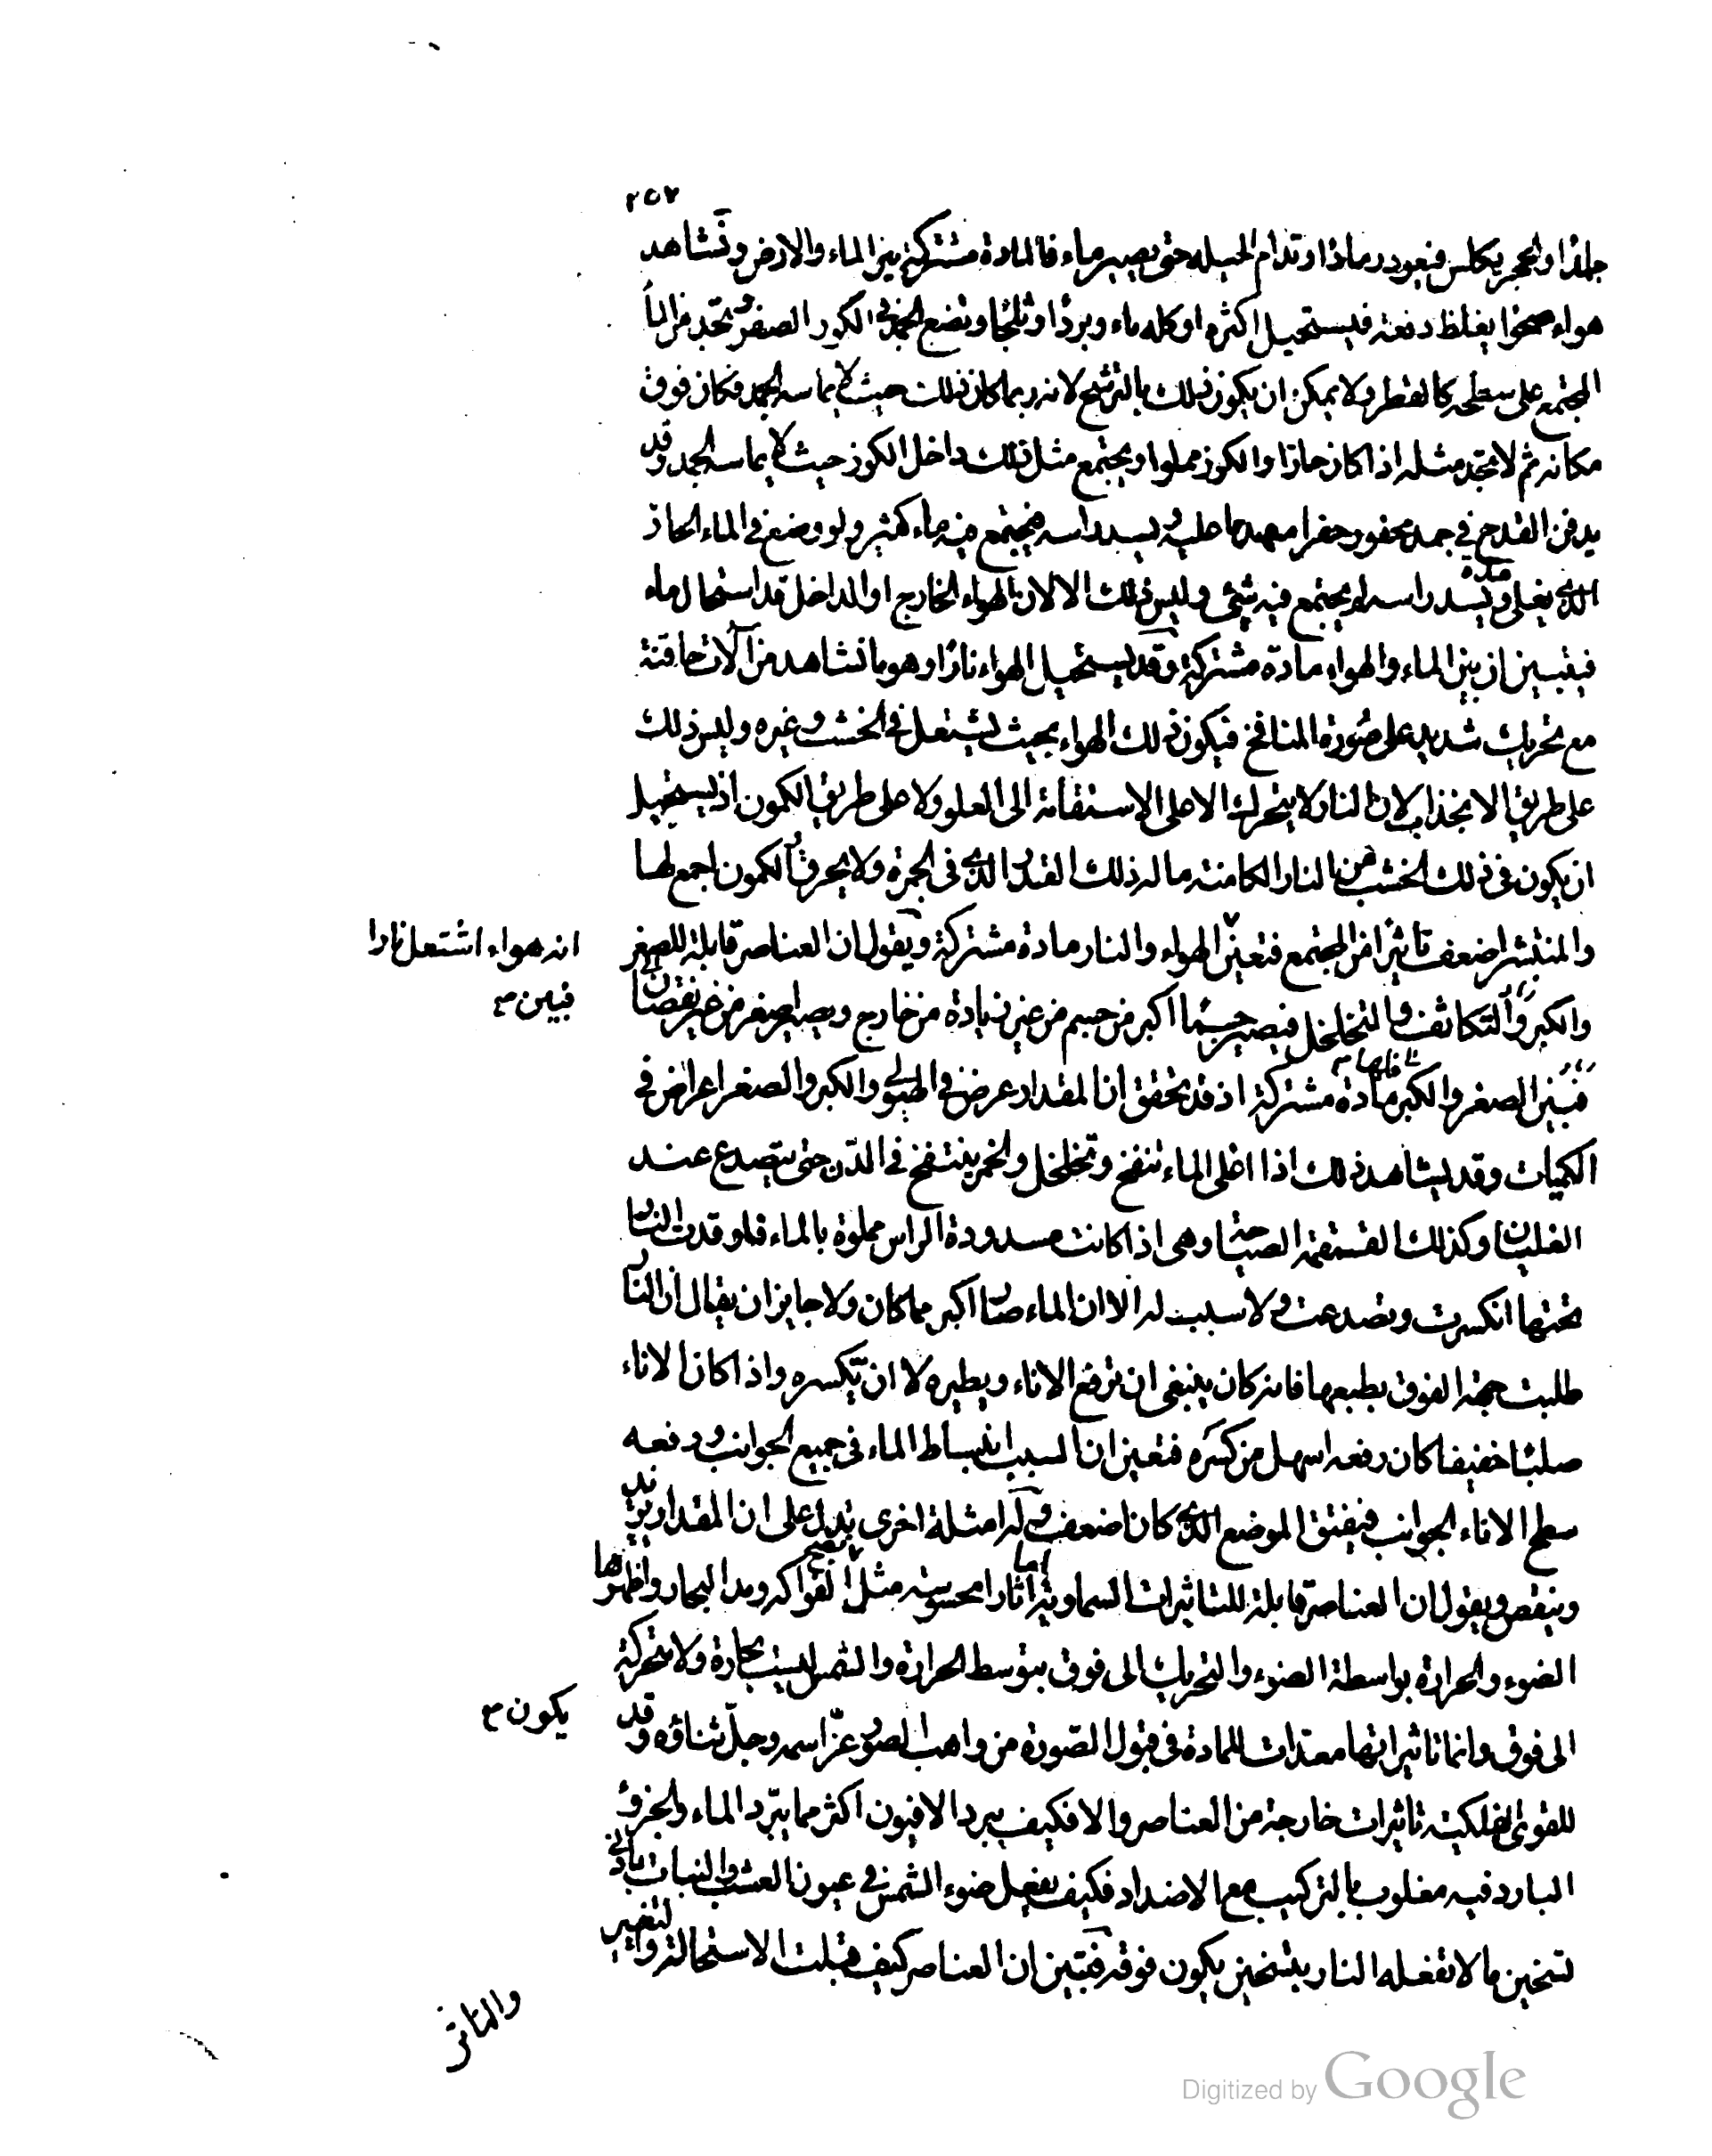 ٢٥٧
جلمدا والحجر يكلس فيعود رمادا وتدام الحيلة حتى يصير ماء فالمادة مشتركة بين الماء والارض ونشاهد
هواء صحوا يغلظ دفعة فيستحيل اكثره او كله ماء وبردا وثلجا ونضع الجمد في الكوز الصفر ونجد من الماء
المجتمع على سطحه كالقطر ولا يمكن ان يكون ذلك بالترشح لانه ربما كان ذلك حيث لا يماسه الجمد وكان فوق
مكانه ثم لا نجد مثله اذا كان حارا والكوز مملوا ويجتمع مثل ذلك داخل الكوز حيث لا يماسه الجمد وقد
يدفن القدح في جمد محفور حفرا مهندما عليه ويسد راسه فيجتمع فيه ماء كثير ولو وضع في الماء الحار
الذي يغلي مدة ويسد راسه لم يجتمع فيه شئ وليس ذلك الا لان الهواء الخارج او الداخل قد استحال ماء
فتبين ان بين الماء والهواء مادة مشتركة وقد يستحيل الهواء نارا وهو ما نشاهد من آلات حاقنة
مع تحريك شديد على صورة المنافخ فيكون ذلك الهواء بحيث يشتعل في الخشب وغيره وليس ذلك
على طريق الانجذاب لان النار لا يتحرك الا على الاستقامة الى العلو ولا على طريق الكمون اذ يستحيل
ان يكون في ذلك الخشب من النار الكامنة ما له ذلك القدر الذي في الجمرة ولا يحرق والكمون اجمع لها
والمنتشر اضعف تاثيرا من المجتمع فتعين انه هواء اشتعل نارا فبين الهواء والنار مادة مشتركة ويقول ان العناصر قابلة للصغر
والكبر والتكاثف والتخلخل فيصير جسما اكبر من جسم من غير زيادة من خارج ويصير اصغر من غير نقصان
فبين الصغر والكبر مادة مشتركة اذ قد تحقق ان المقدار عرض في الهيولى والكبر والصغر اعراض في
الكميات وقد يشاهد ذلك اذا اغلى الماء تنفخ وتخلخل والخمر ينتفخ في الدن حتى يتصدع عند
الغليان وكذلك القمقمة الصياحة وهي اذا كانت مسدودة الراس مملوة بالماء فاوقدت النار
تحتها انكسرت وتصدعت ولا سبب له الا ان الماء صار اكبر مما كان ولا جايز ان يقال ان النار
طلبت جهة الفوق بطبعها فانه كان ينبغي ان ترفع الاناء ويطيره لا ان يكسره واذا كان الاناء
صلبا خفيفا كان رفعه اسهل من كسره فتعين ان السبب انبساط الماء في جميع الجوانب ودفعه
سطح الاناء الجوانب فيفتق الموضع الذي كان اضعف وله امثلة اخرى تدل على ان المقدار يزيد
وينقص ويقول ان العناصر قابلة للتاثيرات السماوية اما آثارا محسوسة مثل نضج الفواكه ومد البحار واظهرها
الضوء والحرارة بواسطة الضوء والتحريك الى فوق بتوسط الحرارة والشمس ليست بحارة ولا متحركة
الى فوق وانما تاثيراتها معدات للمادة في قبول الصورة من واهب الصور عز اسمه وجل ثناؤه وقد يكون
للقوى الفلكية تاثيرات خارجة من العناصر والا فكيف يبرد الافيون اكثر مما يبرد الماء والجزؤ
البارد فيه مغلوب بالتركيب مع الاضداد فكيف يفعل ضوء الشمس في عيون العشب والنبات بادنى
تسخين ما لا تفعله النار بتسخين يكون فوقه فتبين ان العناصر كيف قبلت الاستحالة والتغير
والتاثر
Digitized by Google